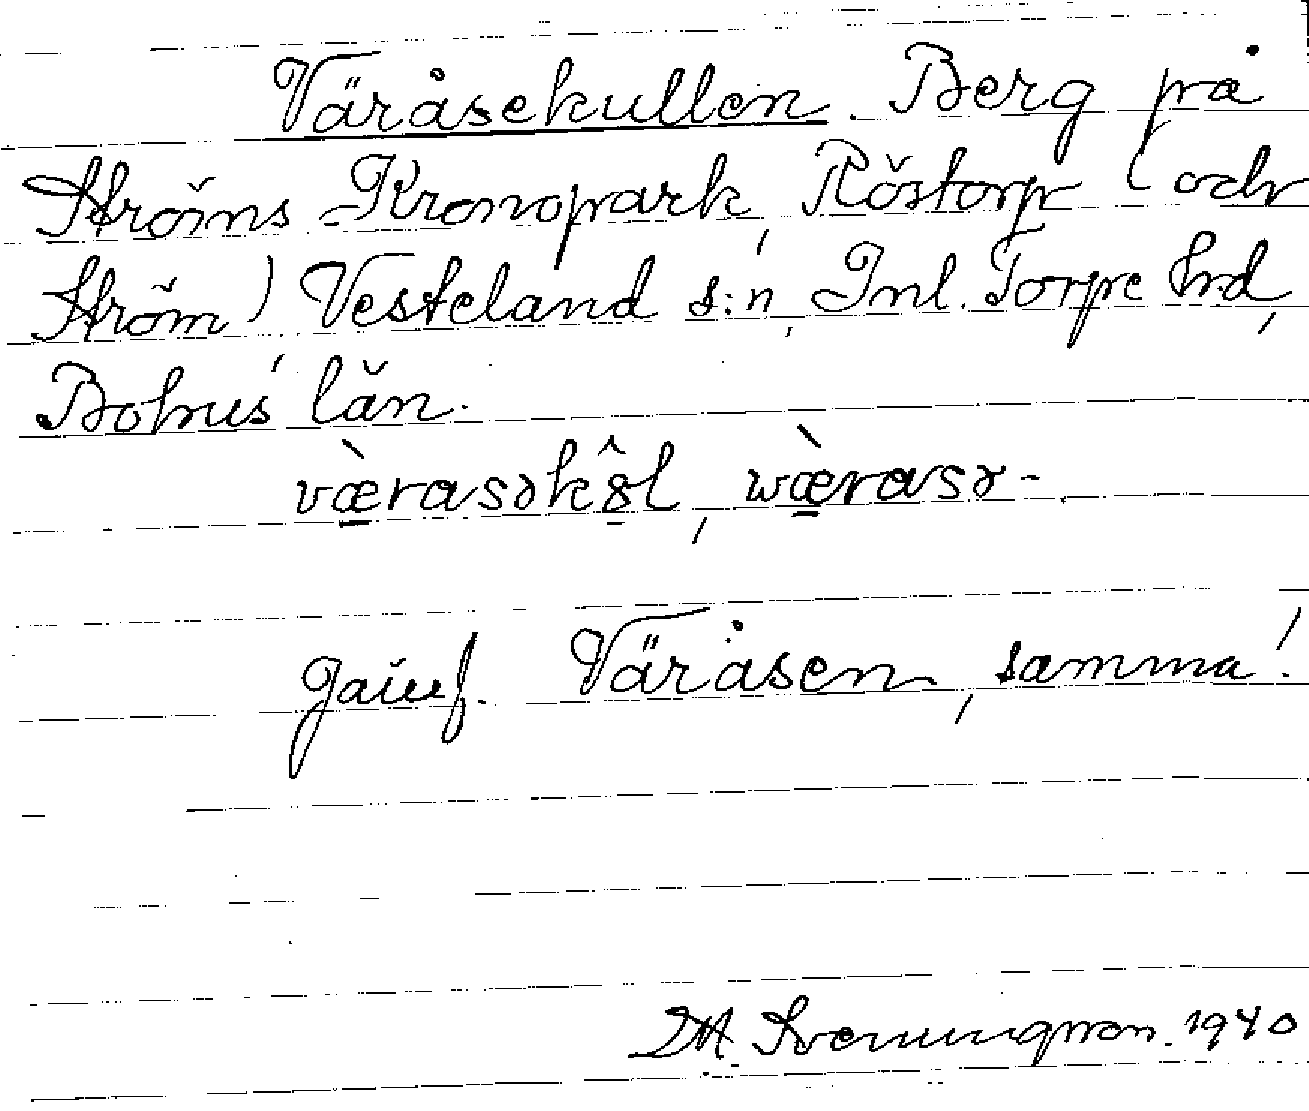 Väråsekullen. Berg på
Ströms Kronopark, Röstorp (och
Ström) Vesteland s:n, Inl. Torpe hd,
Bohus' län.
gäuf. Väråsen, samma!
M. Svenungsson. 1940